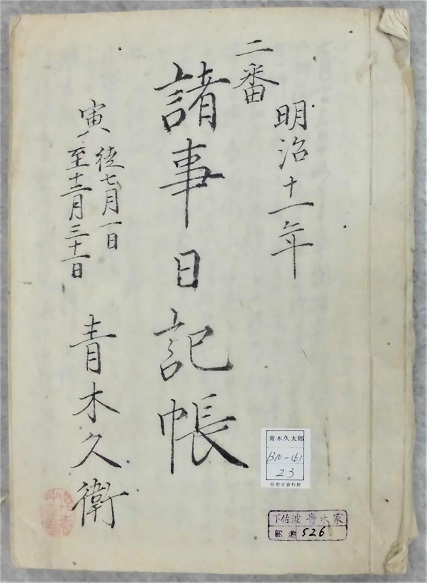 明治十一年
二番
諸事日記帳
寅
従七月一日
至十二月三十一日
青木久衛
青木久太郎
23
下佐波 青木家
526